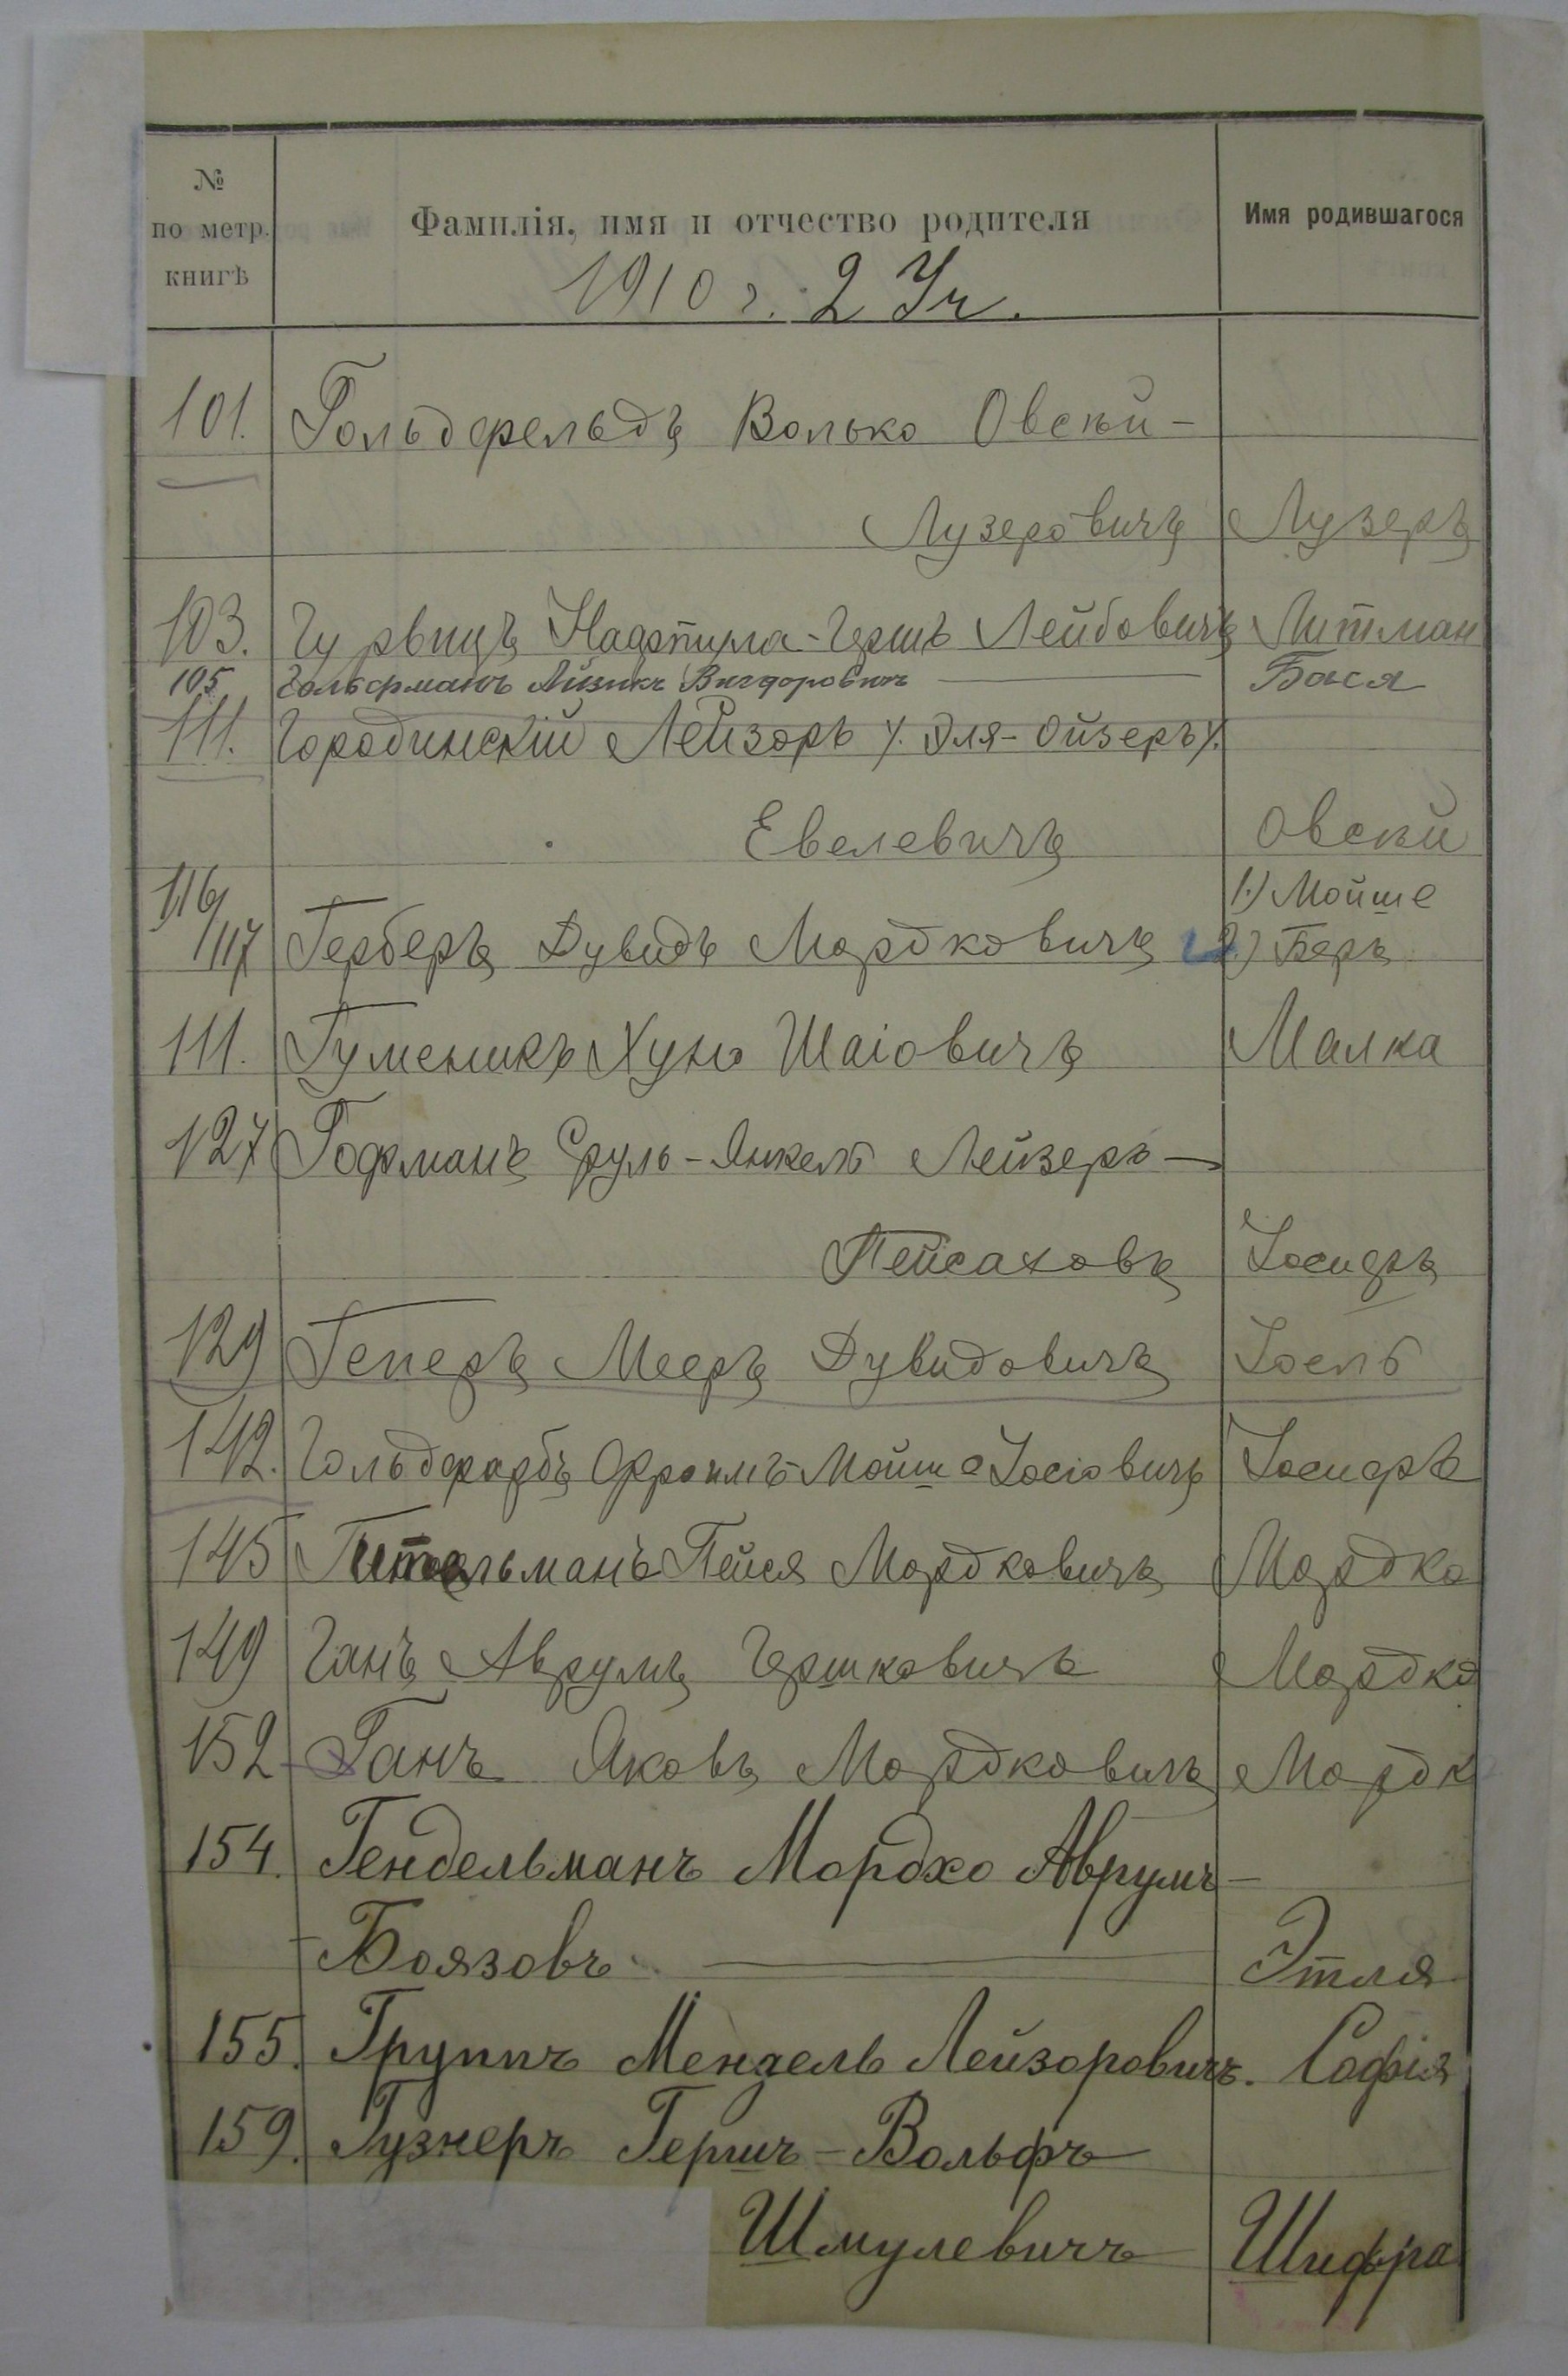 № по метр. книгѣ Фамилія, имя и отчество родителя Имя родившагося
1910 г. 2 Уч.
101. Гольдфельдъ Волько Овсѣй-
Лузеровичъ Лузеръ
103. Гурвицъ Нафтула-Гершъ Лейбовичъ Литман
105 Гольфманъ Айзикъ Вигдоровичъ — Бася
111. Городинскій Лейзоръ /. Эля-Ойзеръ /.
Евелевичъ Овсѣй
116/ 1.) Мойше
117 Герберъ Дувидъ Мордковичъ 2.) Беръ
111. Гуменикъ Хуно Шаіовичъ Малка
127 Гофманъ Сруль-Янкель Лейзеръ-
Пейсаховъ Іосифъ
129 Геперъ Мееръ Дувидовичъ Іосль
142. Гольдфарбъ Фроимъ-Мойше Іосіовичъ Іосифъ
145 Гительманъ Пейся Мордковичъ Мордко
149 Ганъ Аврумъ Гершковичъ Мордко
152 Ганъ Яковъ Мордковичъ Мордк
154. Гендельманъ Мордхо Аврумъ-
-Боязовъ — Этля
155. Группъ Мендель Лейзоровичъ. Софія
159. Гузнеръ Гершъ-Вольфъ
Шмулевичъ Шифра